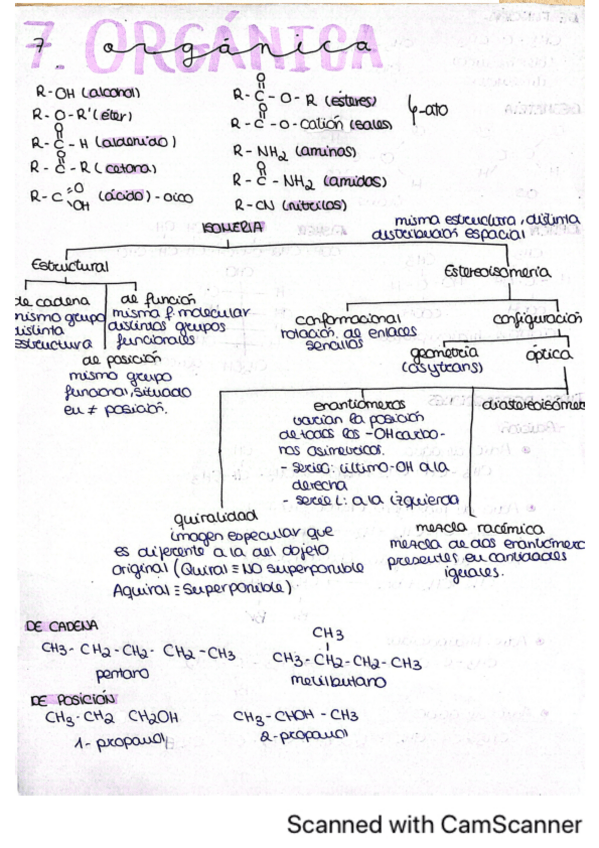 7. ORGÁNICA
orgánica
R-OH (alcohol)
R-O-R' (éter)
O
R-C-H (aldehido)
O
R-C-R (cetona)
R-C =O (ácido) -oico
OH
O
R-C-O-R (ésteres)
O
R-C-O-Catión (sales)
-ato
R-NH2 (aminas)
O
R-C-NH2 (amidas)
R-CN (nitrilos)
ISOMERIA
misma estructura, distinta
distribución espacial
Estructural
Estereoisomeria
de cadena
mismo grupo
distinta
estructura
de función
misma f. molecular
distintos grupos
funcionales
de posición
mismo grupo
funcional, situado
en ≠ posición.
conformacional
rotación de enlaces
sencillos
configuración
geometría
(cis y trans)
óptica
enantiómeros
varian la posición
de todos los -OH carbo-
nos asimetricos.
- serie D: último -OH a la
derecha
- serie L: a la izquierda
diastereoisómer
quiralidad
imagen especular que
es diferente a la del objeto
original (Quiral ≡ NO superponible
Aquiral ≡ Superponible)
mezcla racémica
mezcla de dos enantiómero
presentes en cantidades
iguales.
DE CADENA
CH3-CH2-CH2-CH2-CH3
pentano
CH3
CH3-CH2-CH2-CH3
metilbutano
DE POSICIÓN
CH3-CH2 CH2OH
1-propanol
CH3-CHOH-CH3
2-propanol
Scanned with CamScanner